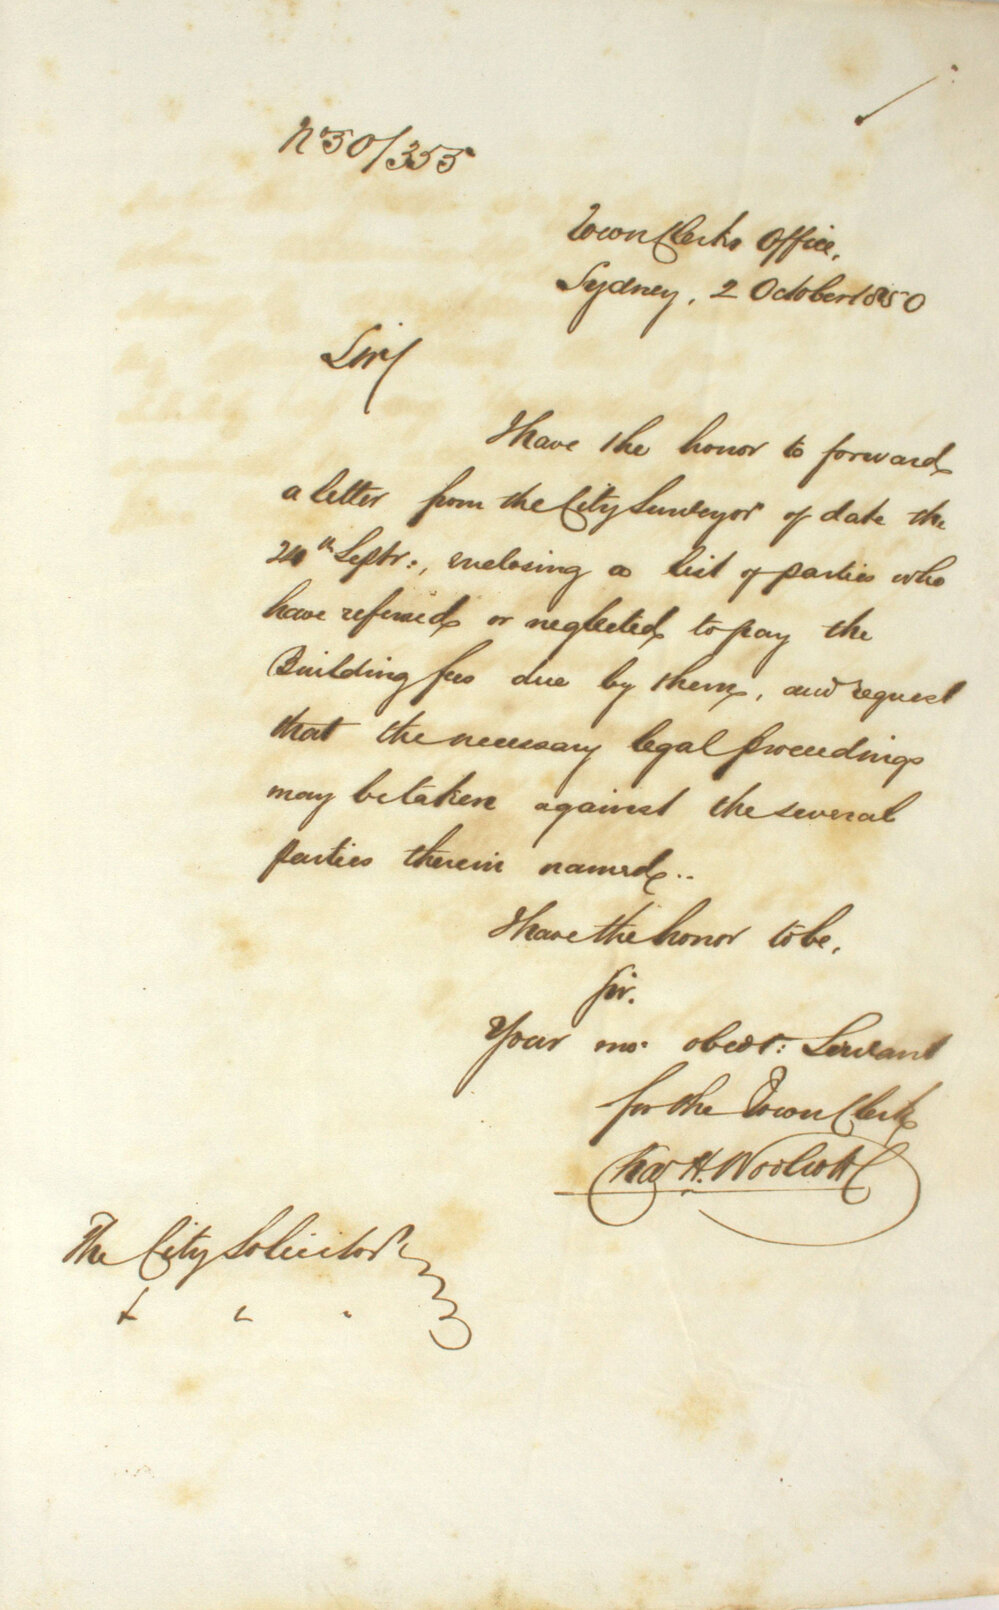 No 50/355
Town Clerks Office,
Sydney, 2 October 1850
Sir/
I have the honor to forward
a letter from the City Surveyor of date the
24th Septr:, enclosing a list of parties who
have refused or neglected to pay the
Building fees due by them, and request
that the necessary legal proceedings
may be taken against the several
parties therein named..
I have the honor to be,
Sir.
Your mo. obedt: Servant
for the Town Clerk
Chas H. Woolcott
The City Solicitor